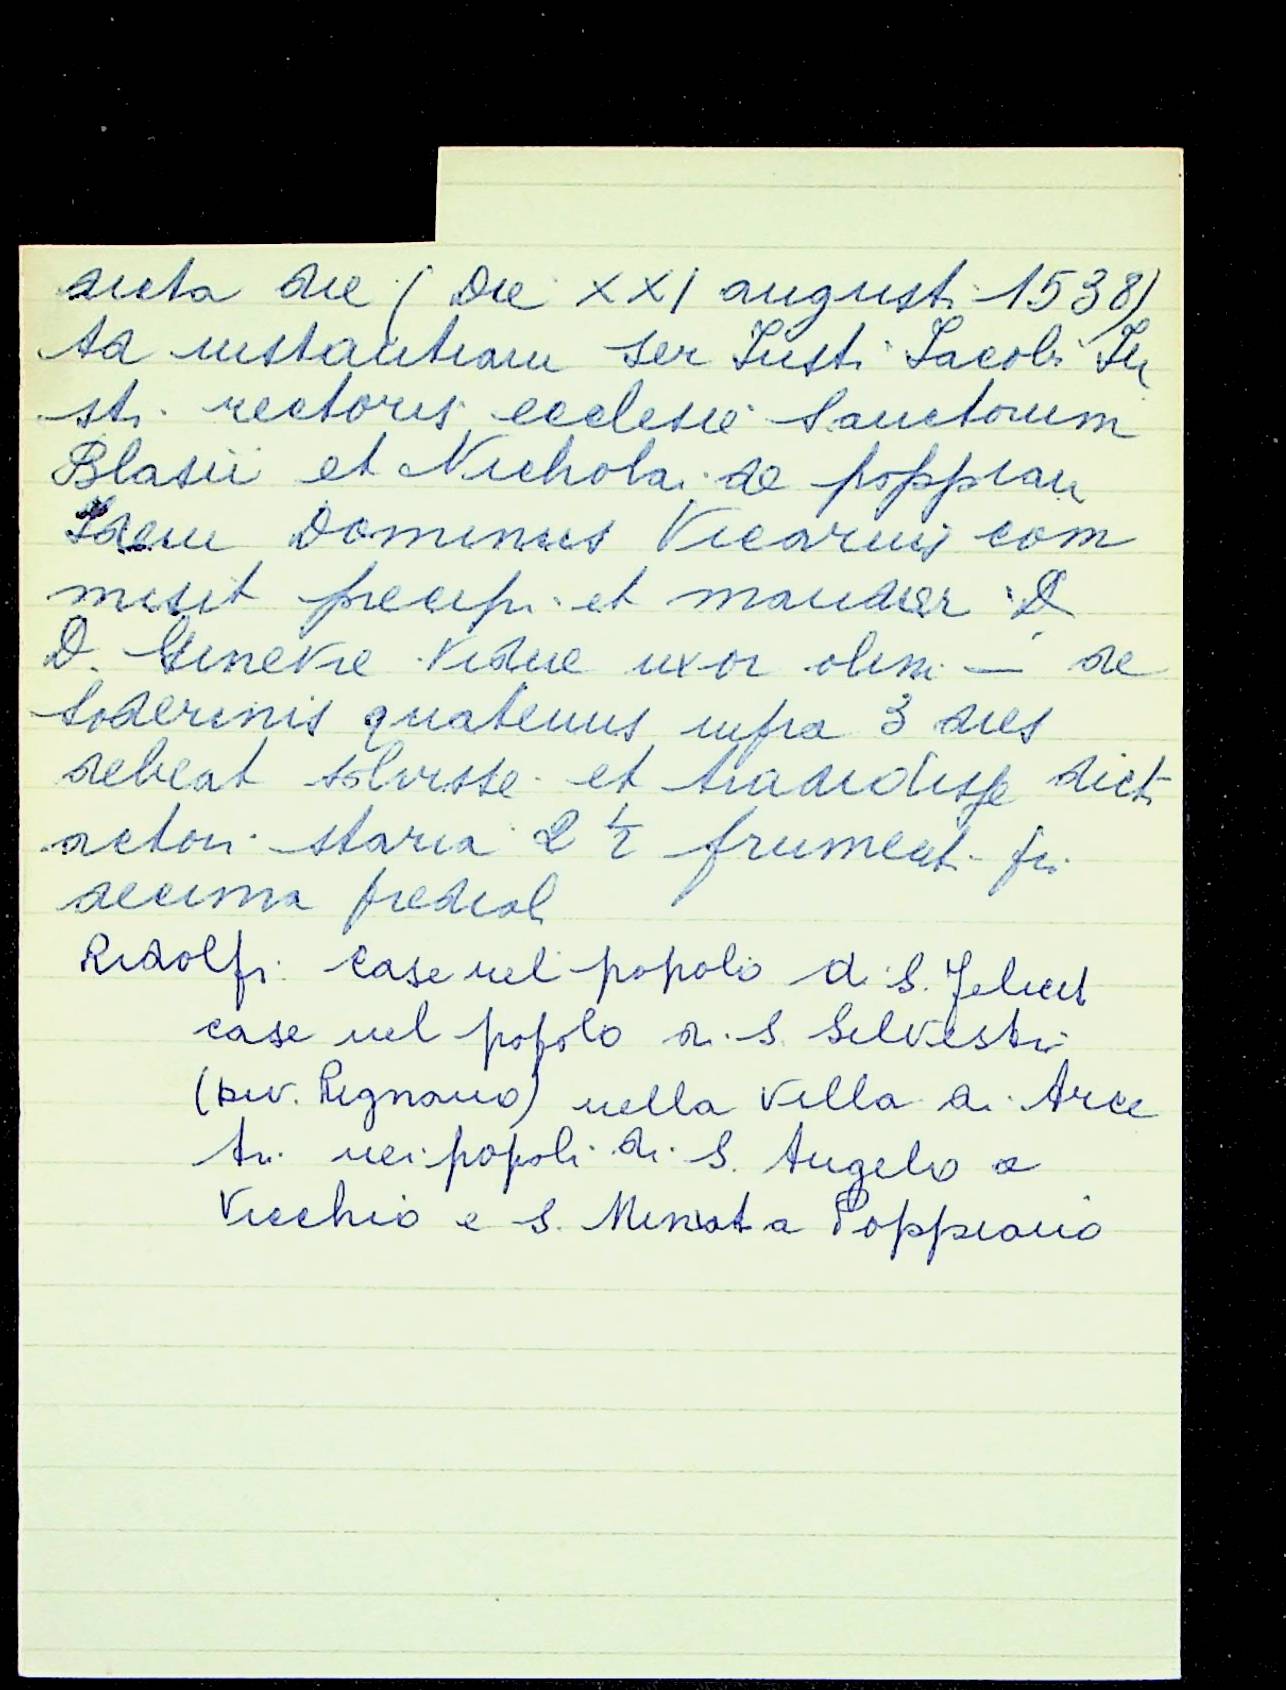 dicta die (Die XXI augusti 1538)
Ad instantiam ser Iusti Iacobi Iu
sti rectoris ecclesie Sanctorum
Blasii et Nicholai de poppian
Idem Dominus Vicarius com
misit precepi et mandavi D
D. Ginevre vidue uxor olim — de
Soderinis quatenus infra 3 dies
debeat solvisse et tradidisse dict
actori staria 2 1/2 frumenti
decima predial
Ridolfi case nel popolo di S. Felicit
case nel popolo di S. Silvestro
(piv. Rignano) nella villa di Arce
tri nei popoli di S. Angelo a
Vicchio e S. Miniat a Poppiano